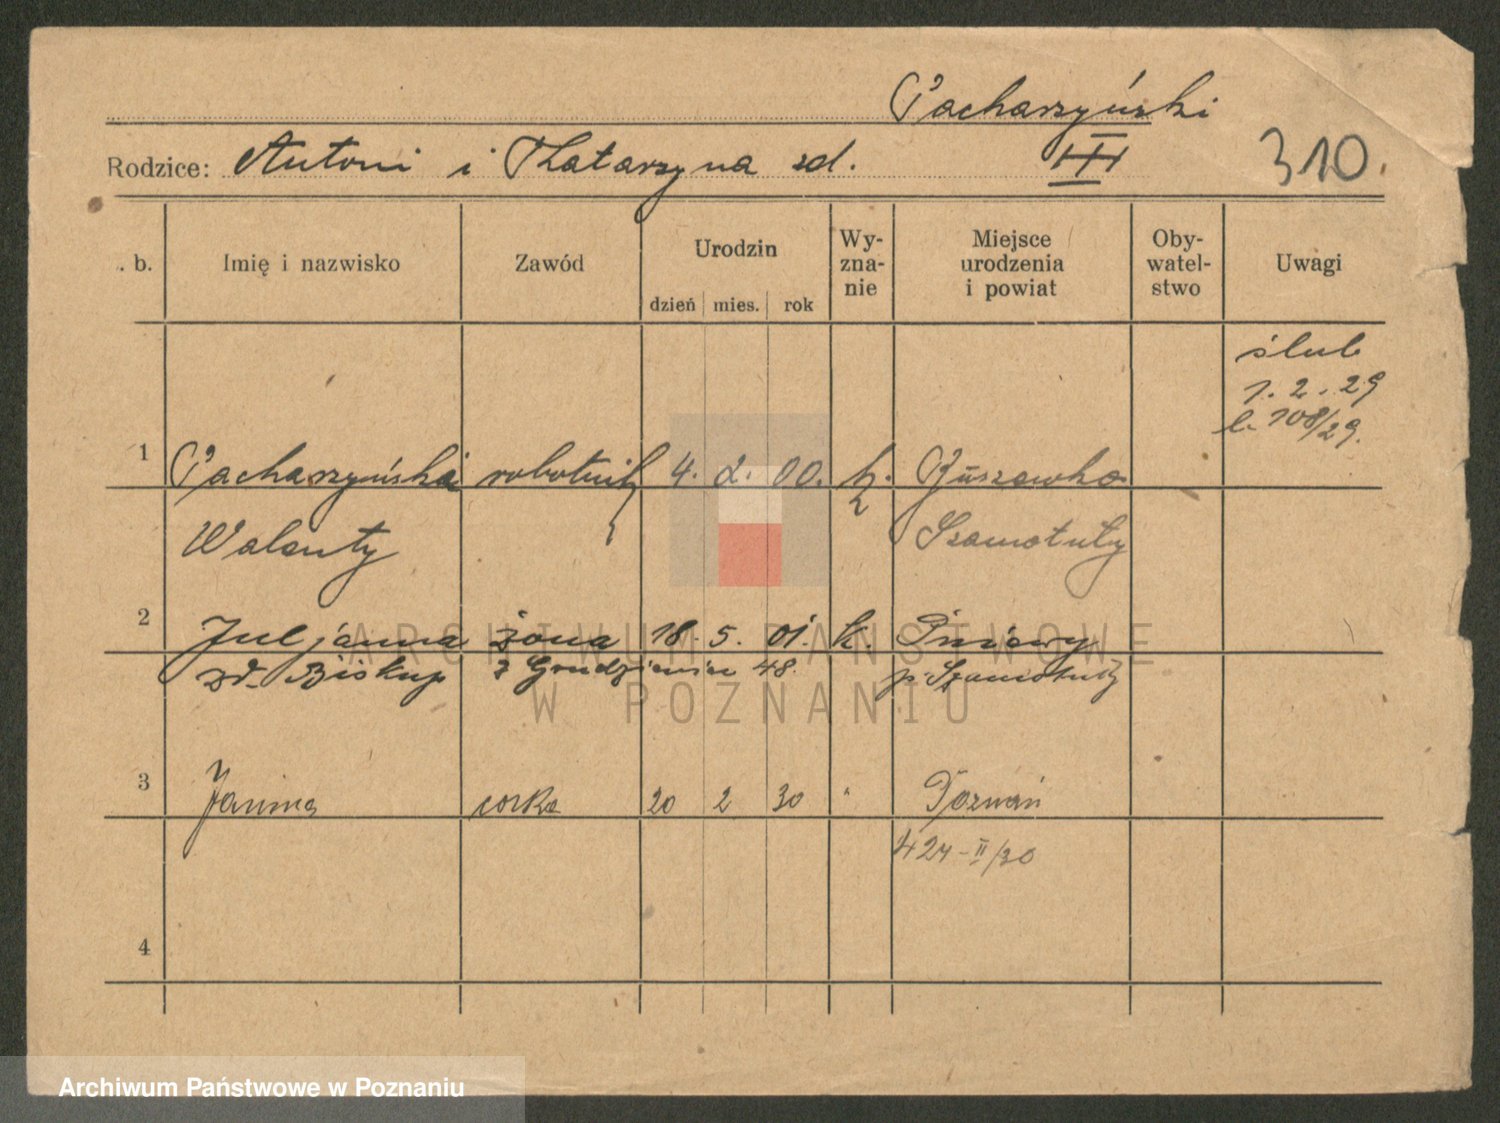 Pacharzyński
Rodzice: Antoni i Katarzyna zd. III 310.
. b. Imię i nazwisko Zawód Urodzin dzień mies. rok Wy-zna-nie Miejsce urodzenia i powiat Oby-watel-stwo Uwagi
ślub
1. 2. 29
l. 108/29.
1 Pacharzyński robotnik 4. 2. 00. k. Ruszawka
Walenty Szamotuły
2 Juljanna żona 18. 5. 01. k. Pniewy
zd. Biskup 48. p. Szamotuły
3 Janina corka 20 2 30 " Poznań
424-II/30
4
ARCHIWUM PAŃSTWOWE
W POZNANIU
Archiwum Państwowe w Poznaniu